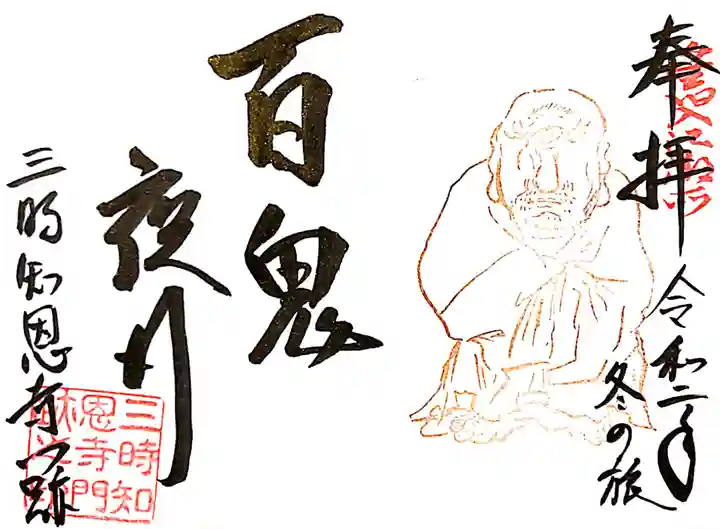 奉拝
令和二年
冬の旅
百鬼
夜行
三時知恩寺門跡
三時知
恩寺門